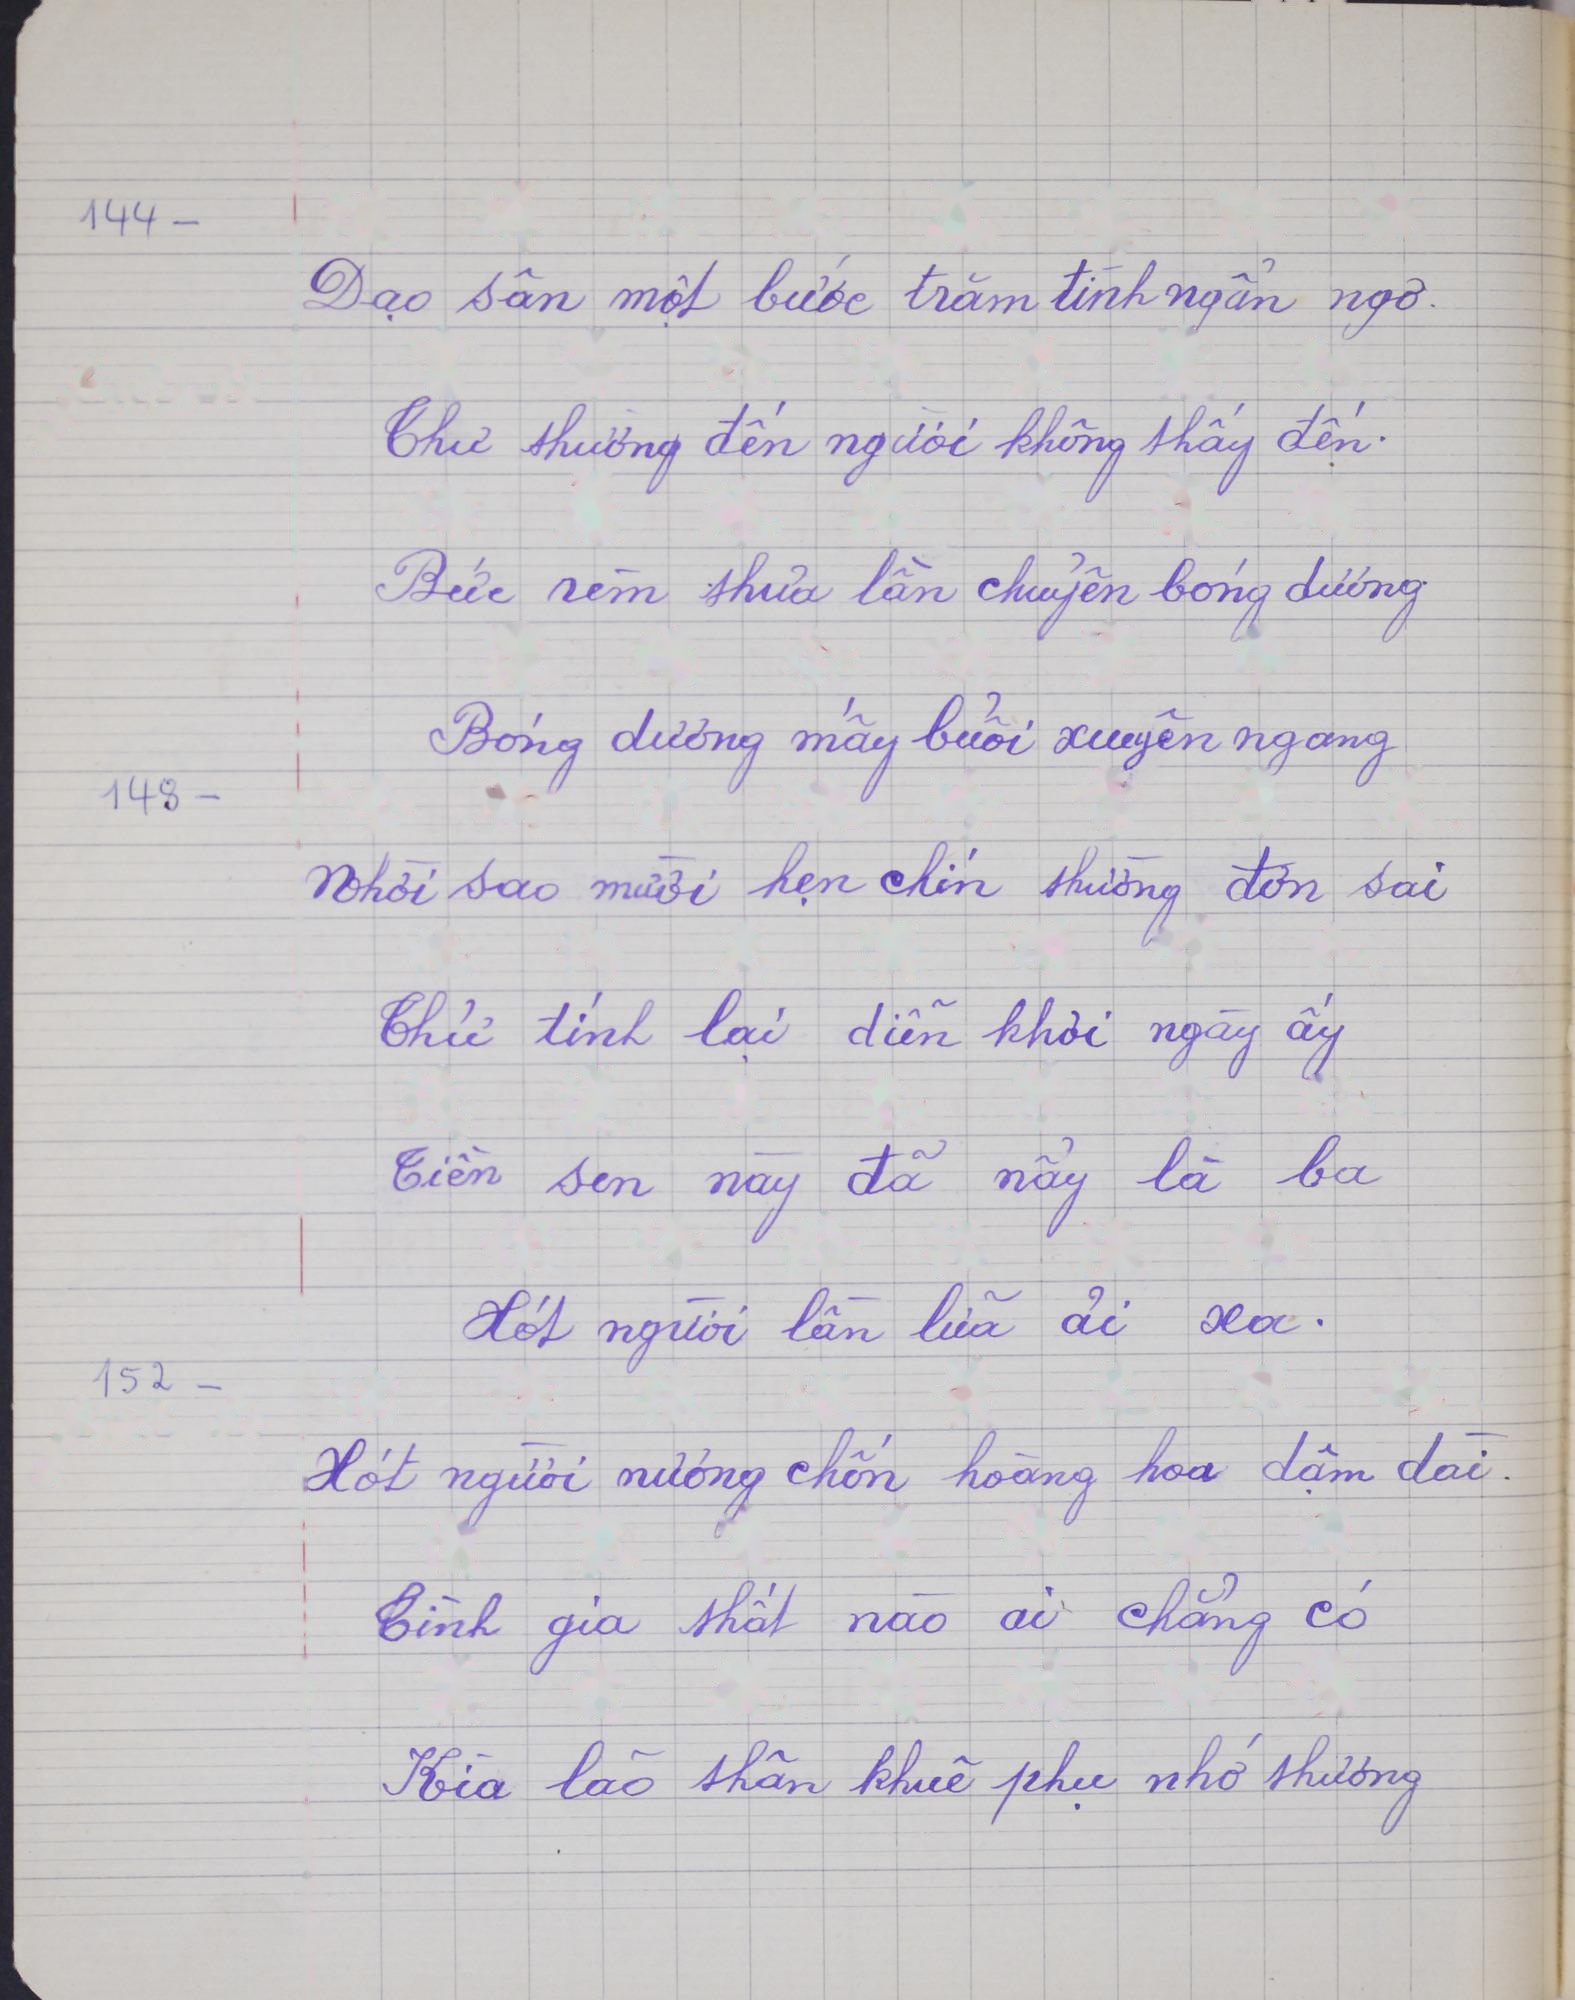 144 -
Dạo sân một bước trăm tình ngẩn ngơ.
Thư thường đến người không thấy đến.
Bức rèm thưa lần chuyển bóng dương
Bóng dương mấy buổi xuyên ngang
148 -
Nhời sao mười hẹn chín thường đơn sai
Thử tính lại diễn khơi ngày ấy
Tiền sen này đã nẩy là ba
Xót người lần lữa ải xa.
152 -
Xót người nương chốn hoàng hoa dặm dài.
Tình gia thất nào ai chẳng có
Kìa lão thân khuê phụ nhớ thương